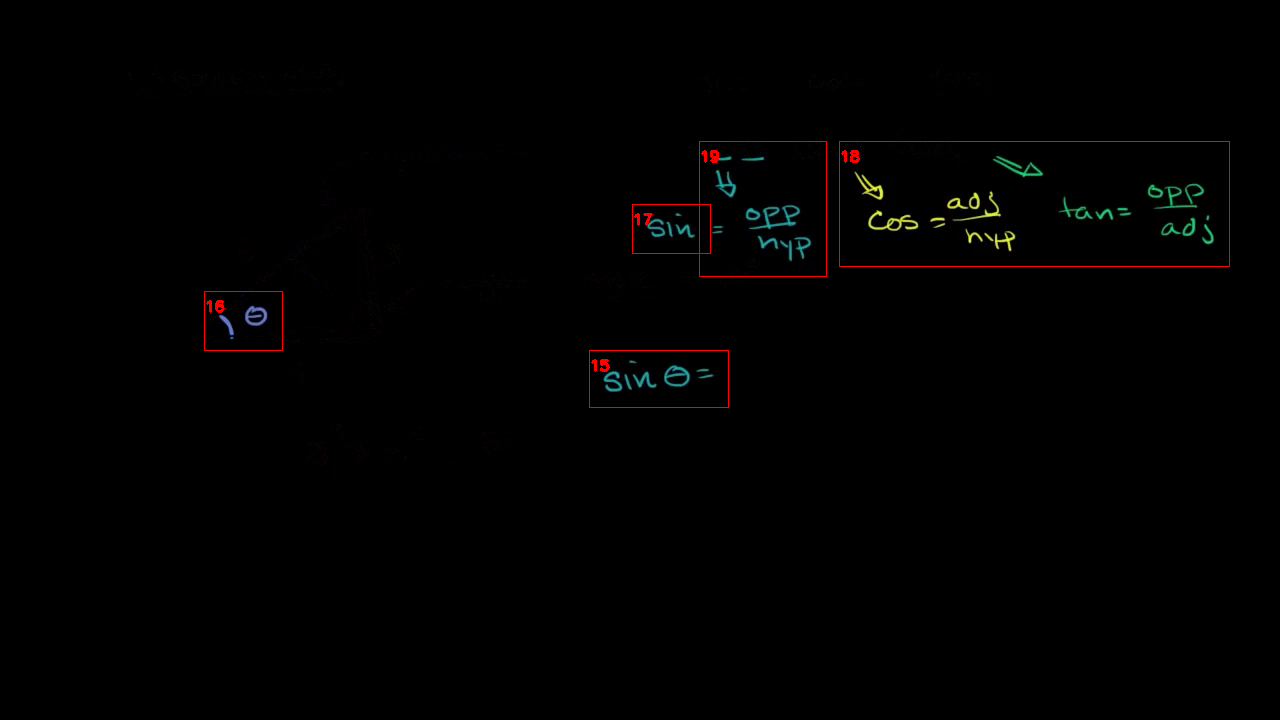 19 18
17 sin = opp/hyp cos = adj/hyp tan = opp/adj
16 θ
15 sin θ =